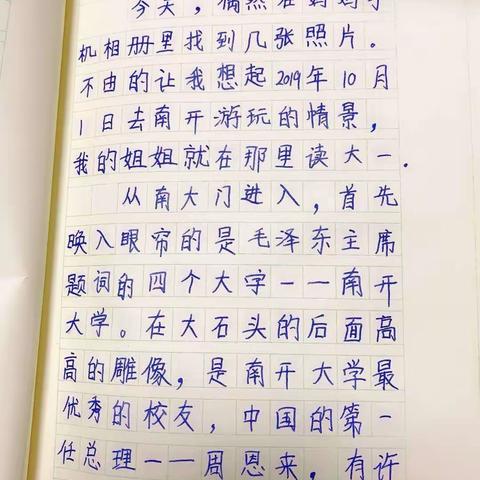 今天，偶然在妈妈手
机相册里找到几张照片。
不由的让我想起2019年10月
1日去南开游玩的情景，
我的姐姐就在那里读大一.
从南大门进入，首先
映入眼帘的是毛泽东主席
题词的四个大字——南开
大学。在大石头的后面高
高的雕像，是南开大学最
优秀的校友，中国的第一
任总理——周恩来，有许